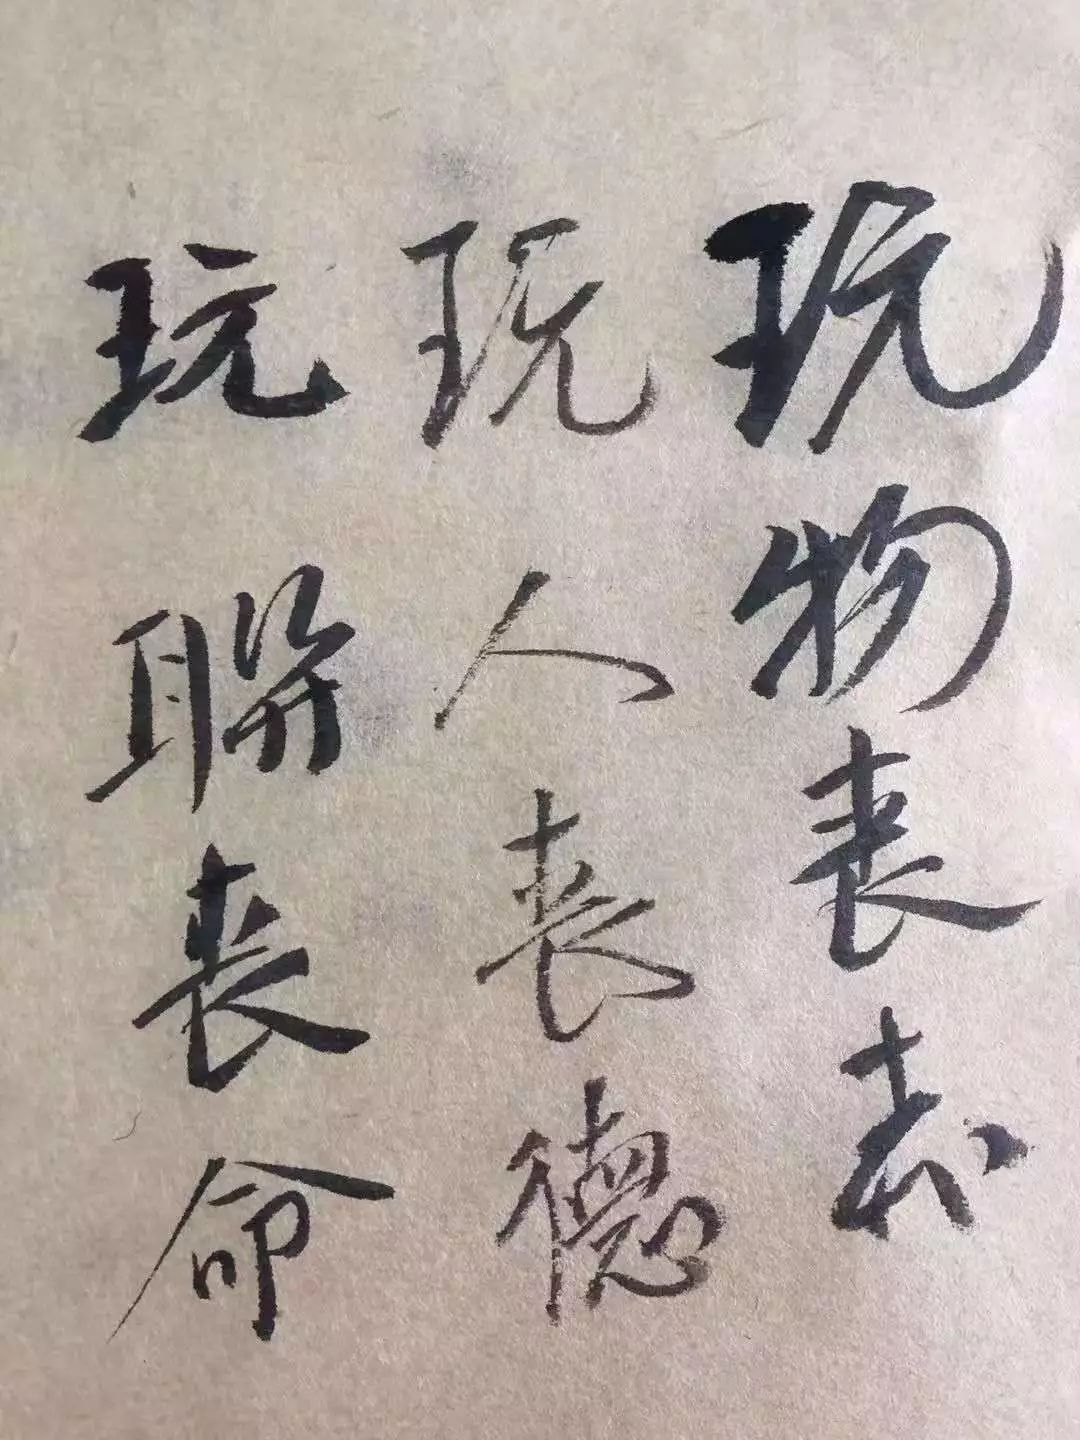 玩物丧志
玩人丧德
玩聯丧命